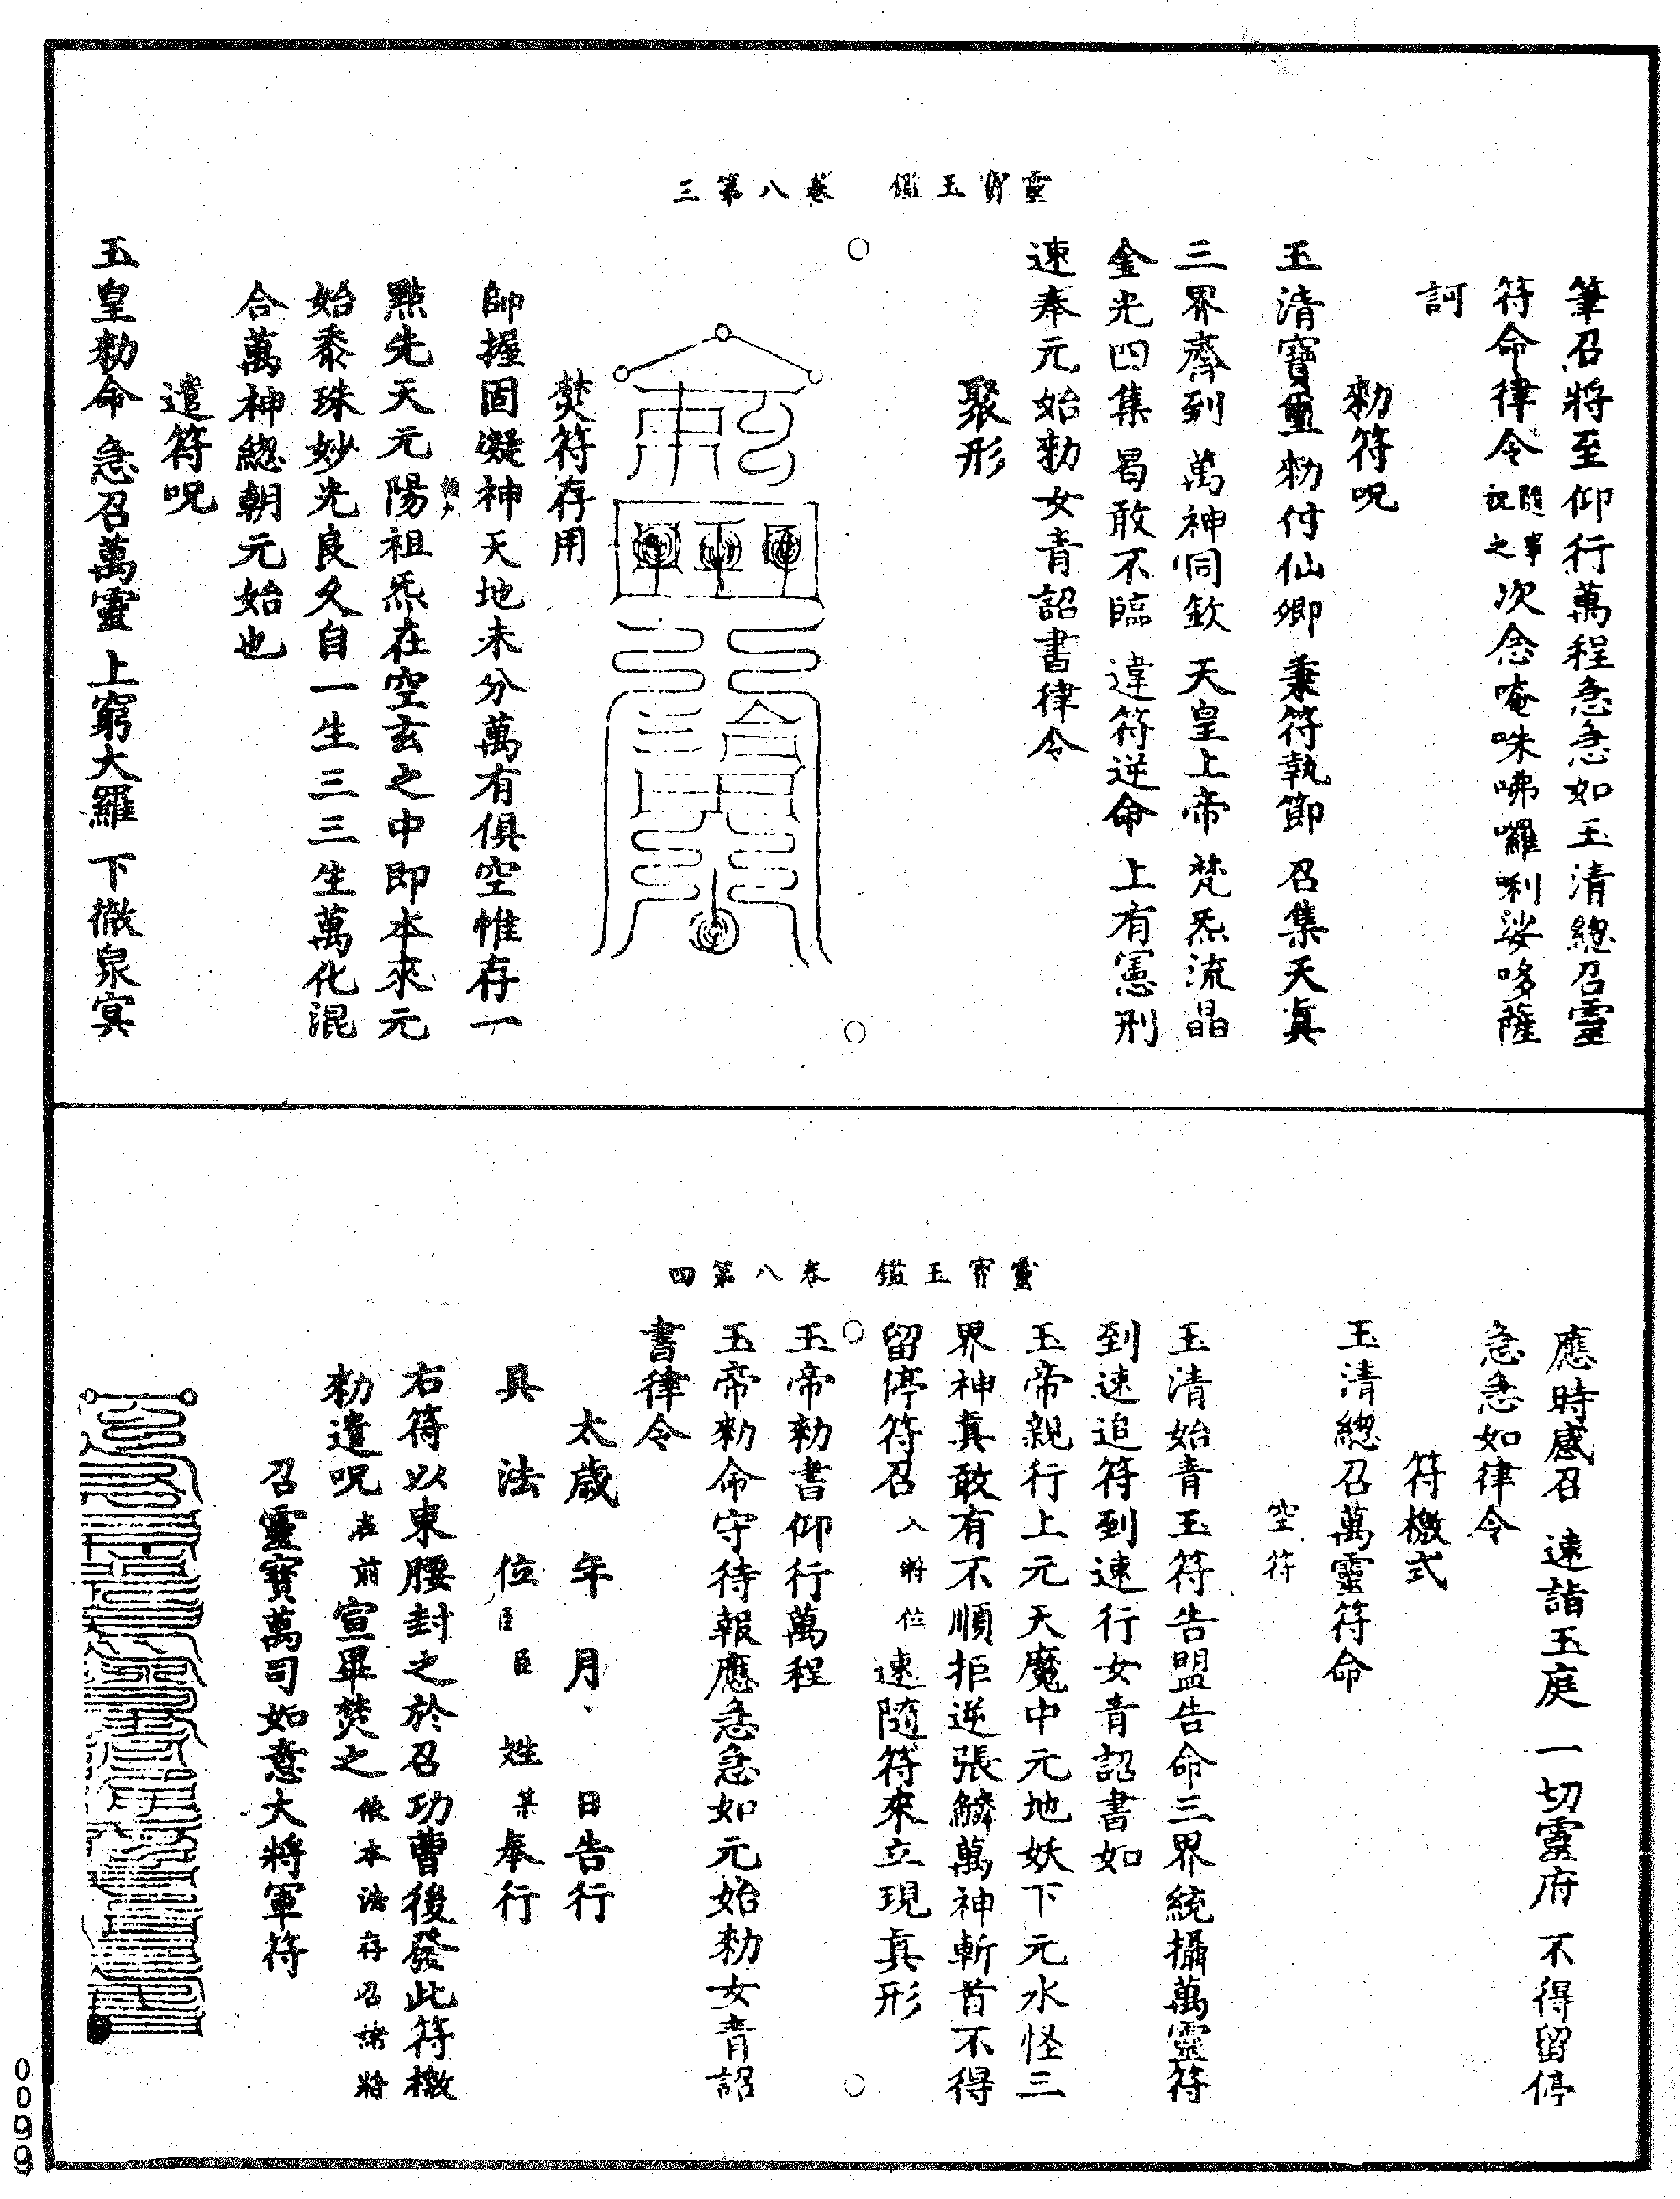 筆召將至仰行萬程急急如玉清總召靈
符命律令隨事祝之次念唵咮咈囉唎娑哆薩
訶
勑符呪
玉清寶璽勑付仙卿 秉符執節 召集天真
三界齊到 萬神同欽 天皇上帝 梵炁流晶
金光四集 曷敢不臨 違符逆命 上有憲刑
速奉元始勑女青詔書律令
聚形
靈寶玉鑑 卷八第三
焚符存用
師握固凝神天地未分萬有俱空惟存一
點先天元陽祖炁在空玄之中即本來元
始黍珠妙光良久自一生三三生萬化混
合萬神總朝元始也
遣符呪
玉皇勑命 急召萬靈 上窮大羅 下徹泉冥
應時感召 速詣玉庭 一切靈府 不得留停
急急如律令
符檄式
玉清總召萬靈符命
空符
玉清始青玉符告盟告命三界統攝萬靈符
到速追符到速行女青詔書如
玉帝親行上元天魔中元地妖下元水怪三
界神真敢有不順拒逆張鱗萬神斬首不得
留停符召入將位速隨符來立現真形
靈寶玉鑑 卷八第四
玉帝勑書仰行萬程
玉帝勑命守待報應急急如元始勑女青詔
書律令
太歲 年 月 日告行
具 法 位臣 臣 姓某奉行
右符以束腰封之於召功曹後發此符檄
勑遣呪在前宣畢焚之依本法存召諸將
召靈寶萬司如意大將軍符
0099